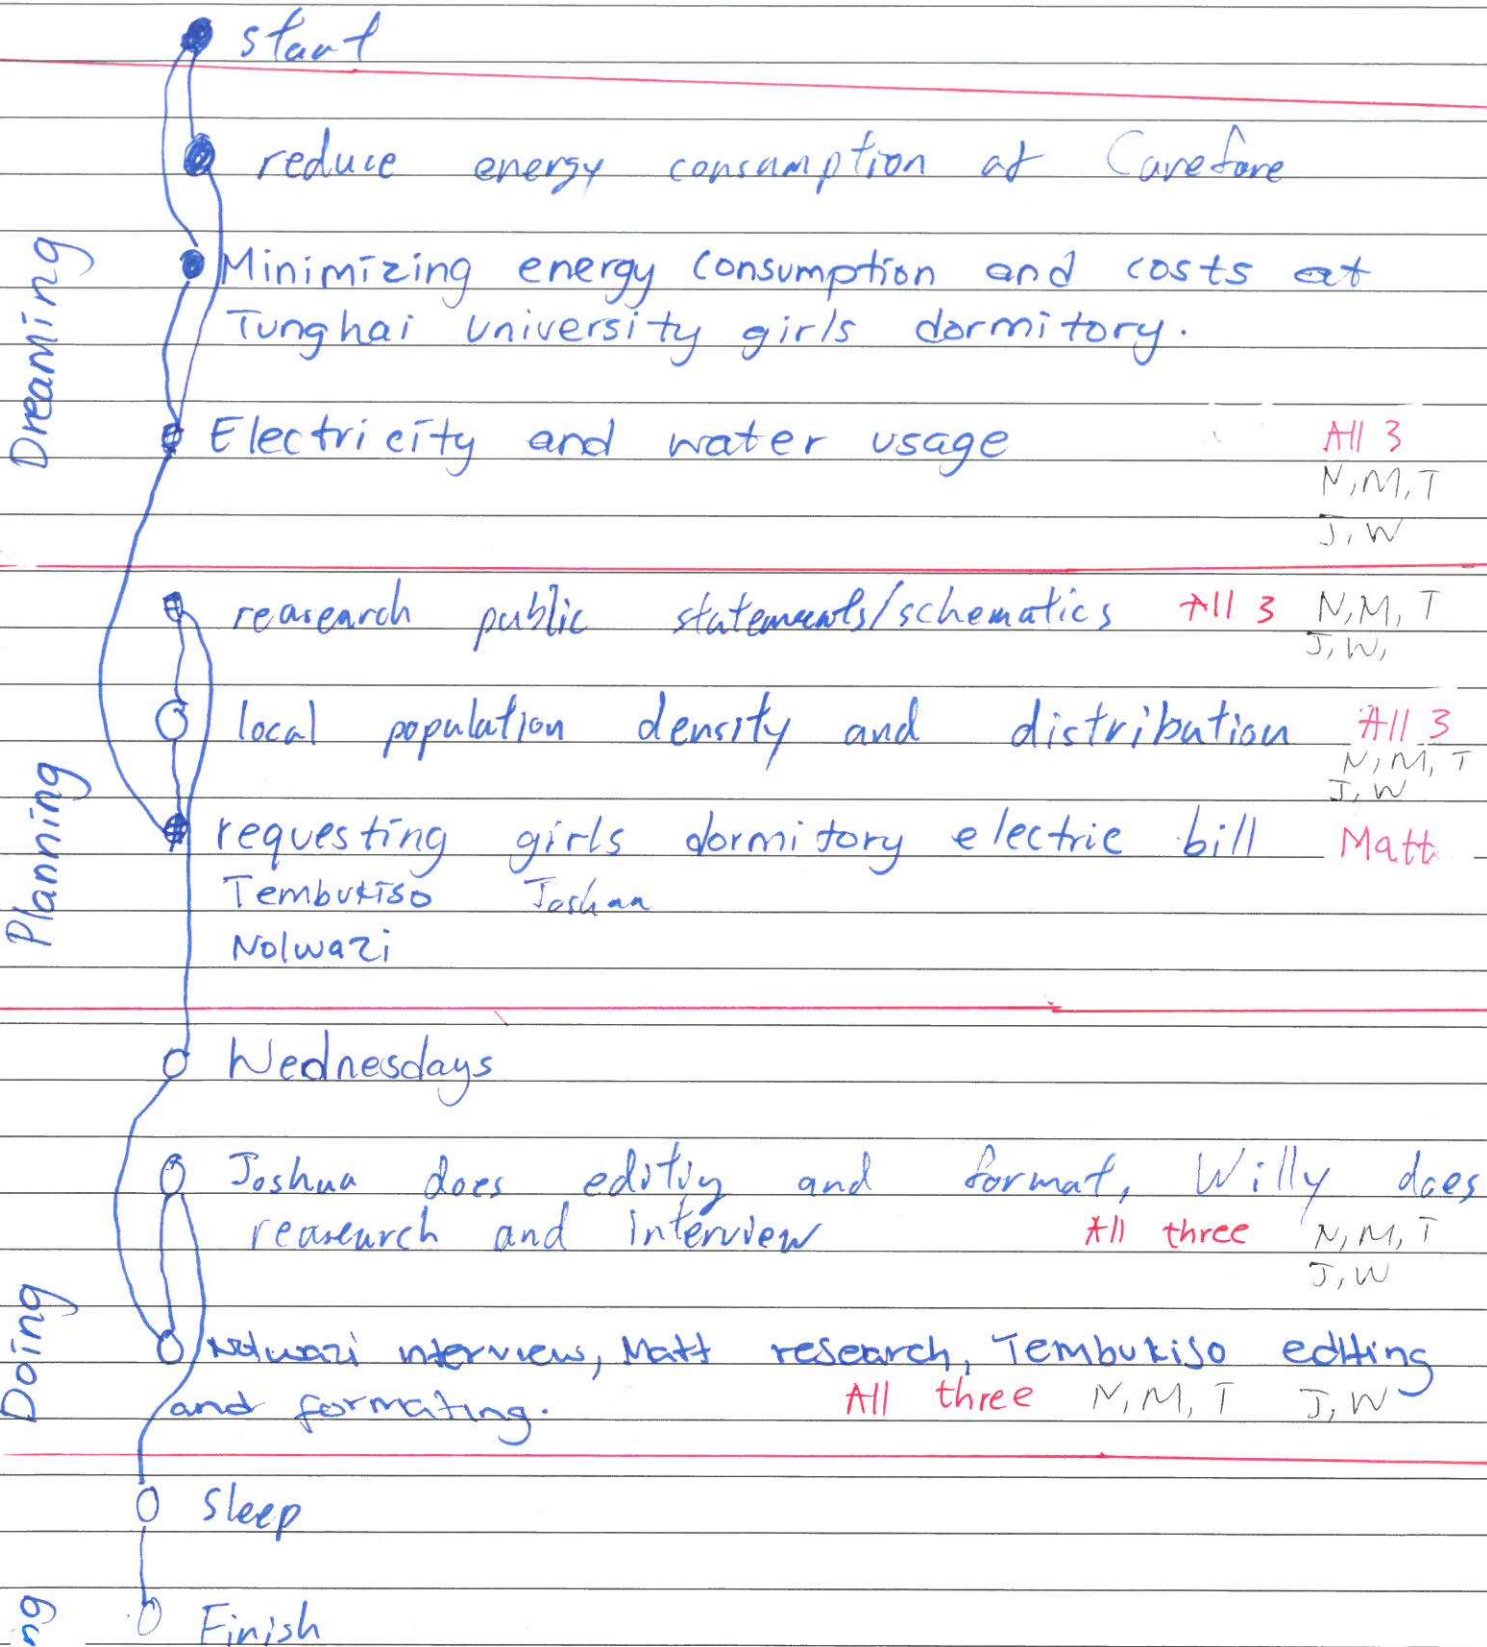 start
reduce energy consumption at Carefore
Minimizing energy consumption and costs at
Tunghai university girls dormitory.
Dreaming
Electricity and water usage All 3
N,M,T
J,W
reasearch public statements/schematics All 3 N,M,T
J,W,
local population density and distribution All 3
N,M,T
J,W
Planning
requesting girls dormitory electric bill Matt
Tembukiso Joshua
Nolwazi
Wednesdays
Joshua does editiy and format, Willy does
reasearch and interview All three N,M,T
J,W
Doing
Nolwazi interview, Matt research, Tembukiso editing
and formating. All three N,M,T J,W
Sleep
ng
Finish